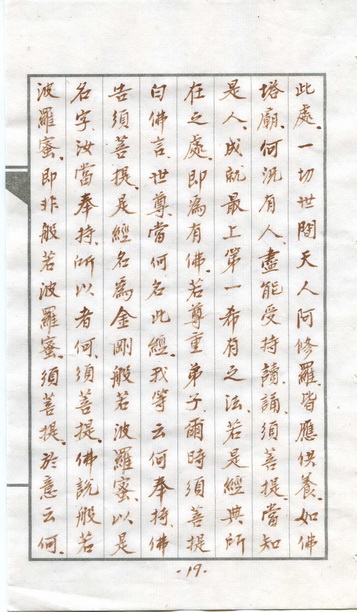 此處、一切世間天人阿修羅皆應供養、如佛
塔廟、何況有人、盡能受持讀誦、須菩提、當知
是人、成就最上第一希有之法、若是經典所
在之處、即為有佛、若尊重弟子、爾時須菩提
白佛言、世尊、當何名此經、我等云何奉持、佛
告須菩提、是經名為金剛般若波羅蜜、以是
名字、汝當奉持、所以者何、須菩提、佛說般若
波羅蜜、即非般若波羅蜜、須菩提、於意云何、
-19-